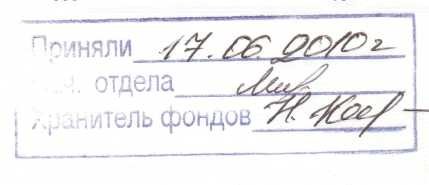 Приняли 17.06.2010г
Нач. отдела
Хранитель фондов Н.